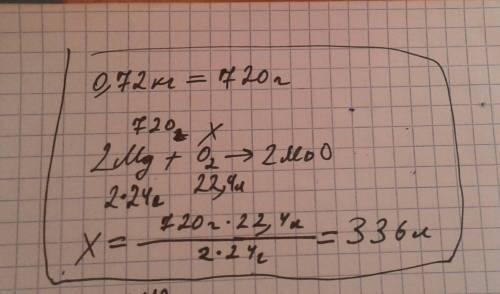 0,72кг = 720г
720г X
2Mg + O₂ → 2MgO
2·24г 22,4л
X = 720г·22,4л / 2·24г = 336л